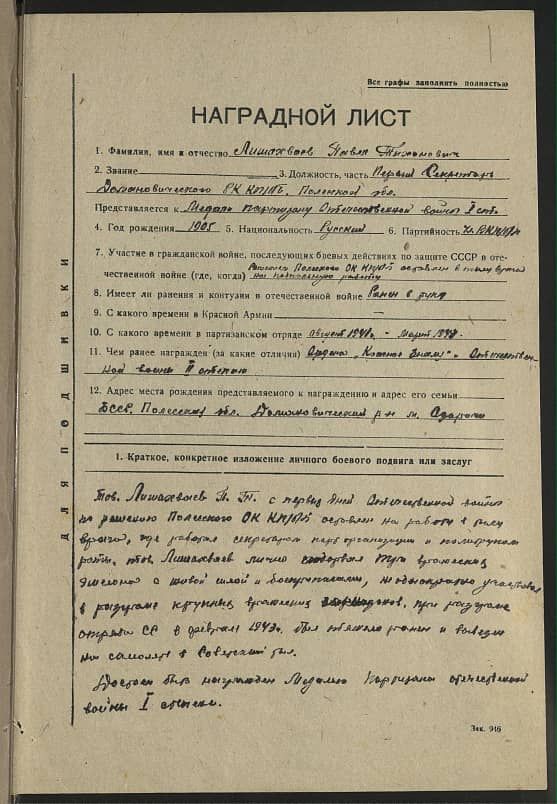 Все графы заполнить полностью
НАГРАДНОЙ ЛИСТ
1. Фамилия, имя и отчество Лишахваев Павел Тихонович
2. Звание 3. Должность, часть Первый Секретарь
Домановического РК КП/б/Б, Полесской обл.
Представляется к Медали партизану Отечественной войны I ст.
4. Год рождения 1905 5. Национальность Русский 6. Партийность Чл. ВКП/б/
7. Участие в гражданской войне, последующих боевых действиях по защите СССР в оте-
чественной войне (где, когда) Решением Полесского ОК КП/б/Б оставлен в тылу врага
на подпольную работу
8. Имеет ли ранения и контузии в отечественной войне Ранен в
9. С какого времени в Красной Армии
10. С какого времени в партизанском отряде август 1941г. - март 1943г.
11. Чем ранее награжден (за какие отличия) Ордена „Красное Знамя" и Отечествен-
ной войны II степени
12. Адрес места рождения представляемого к награждению и адрес его семьи
БССР, Полесская обл. Домановический р-н м.
1. Краткое, конкретное изложение личного боевого подвига или заслуг
Тов. Лишахваев П. Т. с первых дней Отечественной войны
по решению Полесского ОК КП/б/Б оставлен на работе в тылу
врага, где работал секретарем парторганизации и политруком
роты. тов. Лишахваев лично подорвал три вражеских
эшелона с живой силой и боеприпасами, неоднократно участвовал
в разгроме крупных вражеских при разгроме
отряда СС в феврале 1943г. был тяжело ранен и вывезен
на самолете в Советский тыл.
Достоин быть награжден Медалью Партизана отечественной
войны I степени.
Зак. 946
ДЛЯ ПОДШИВКИ